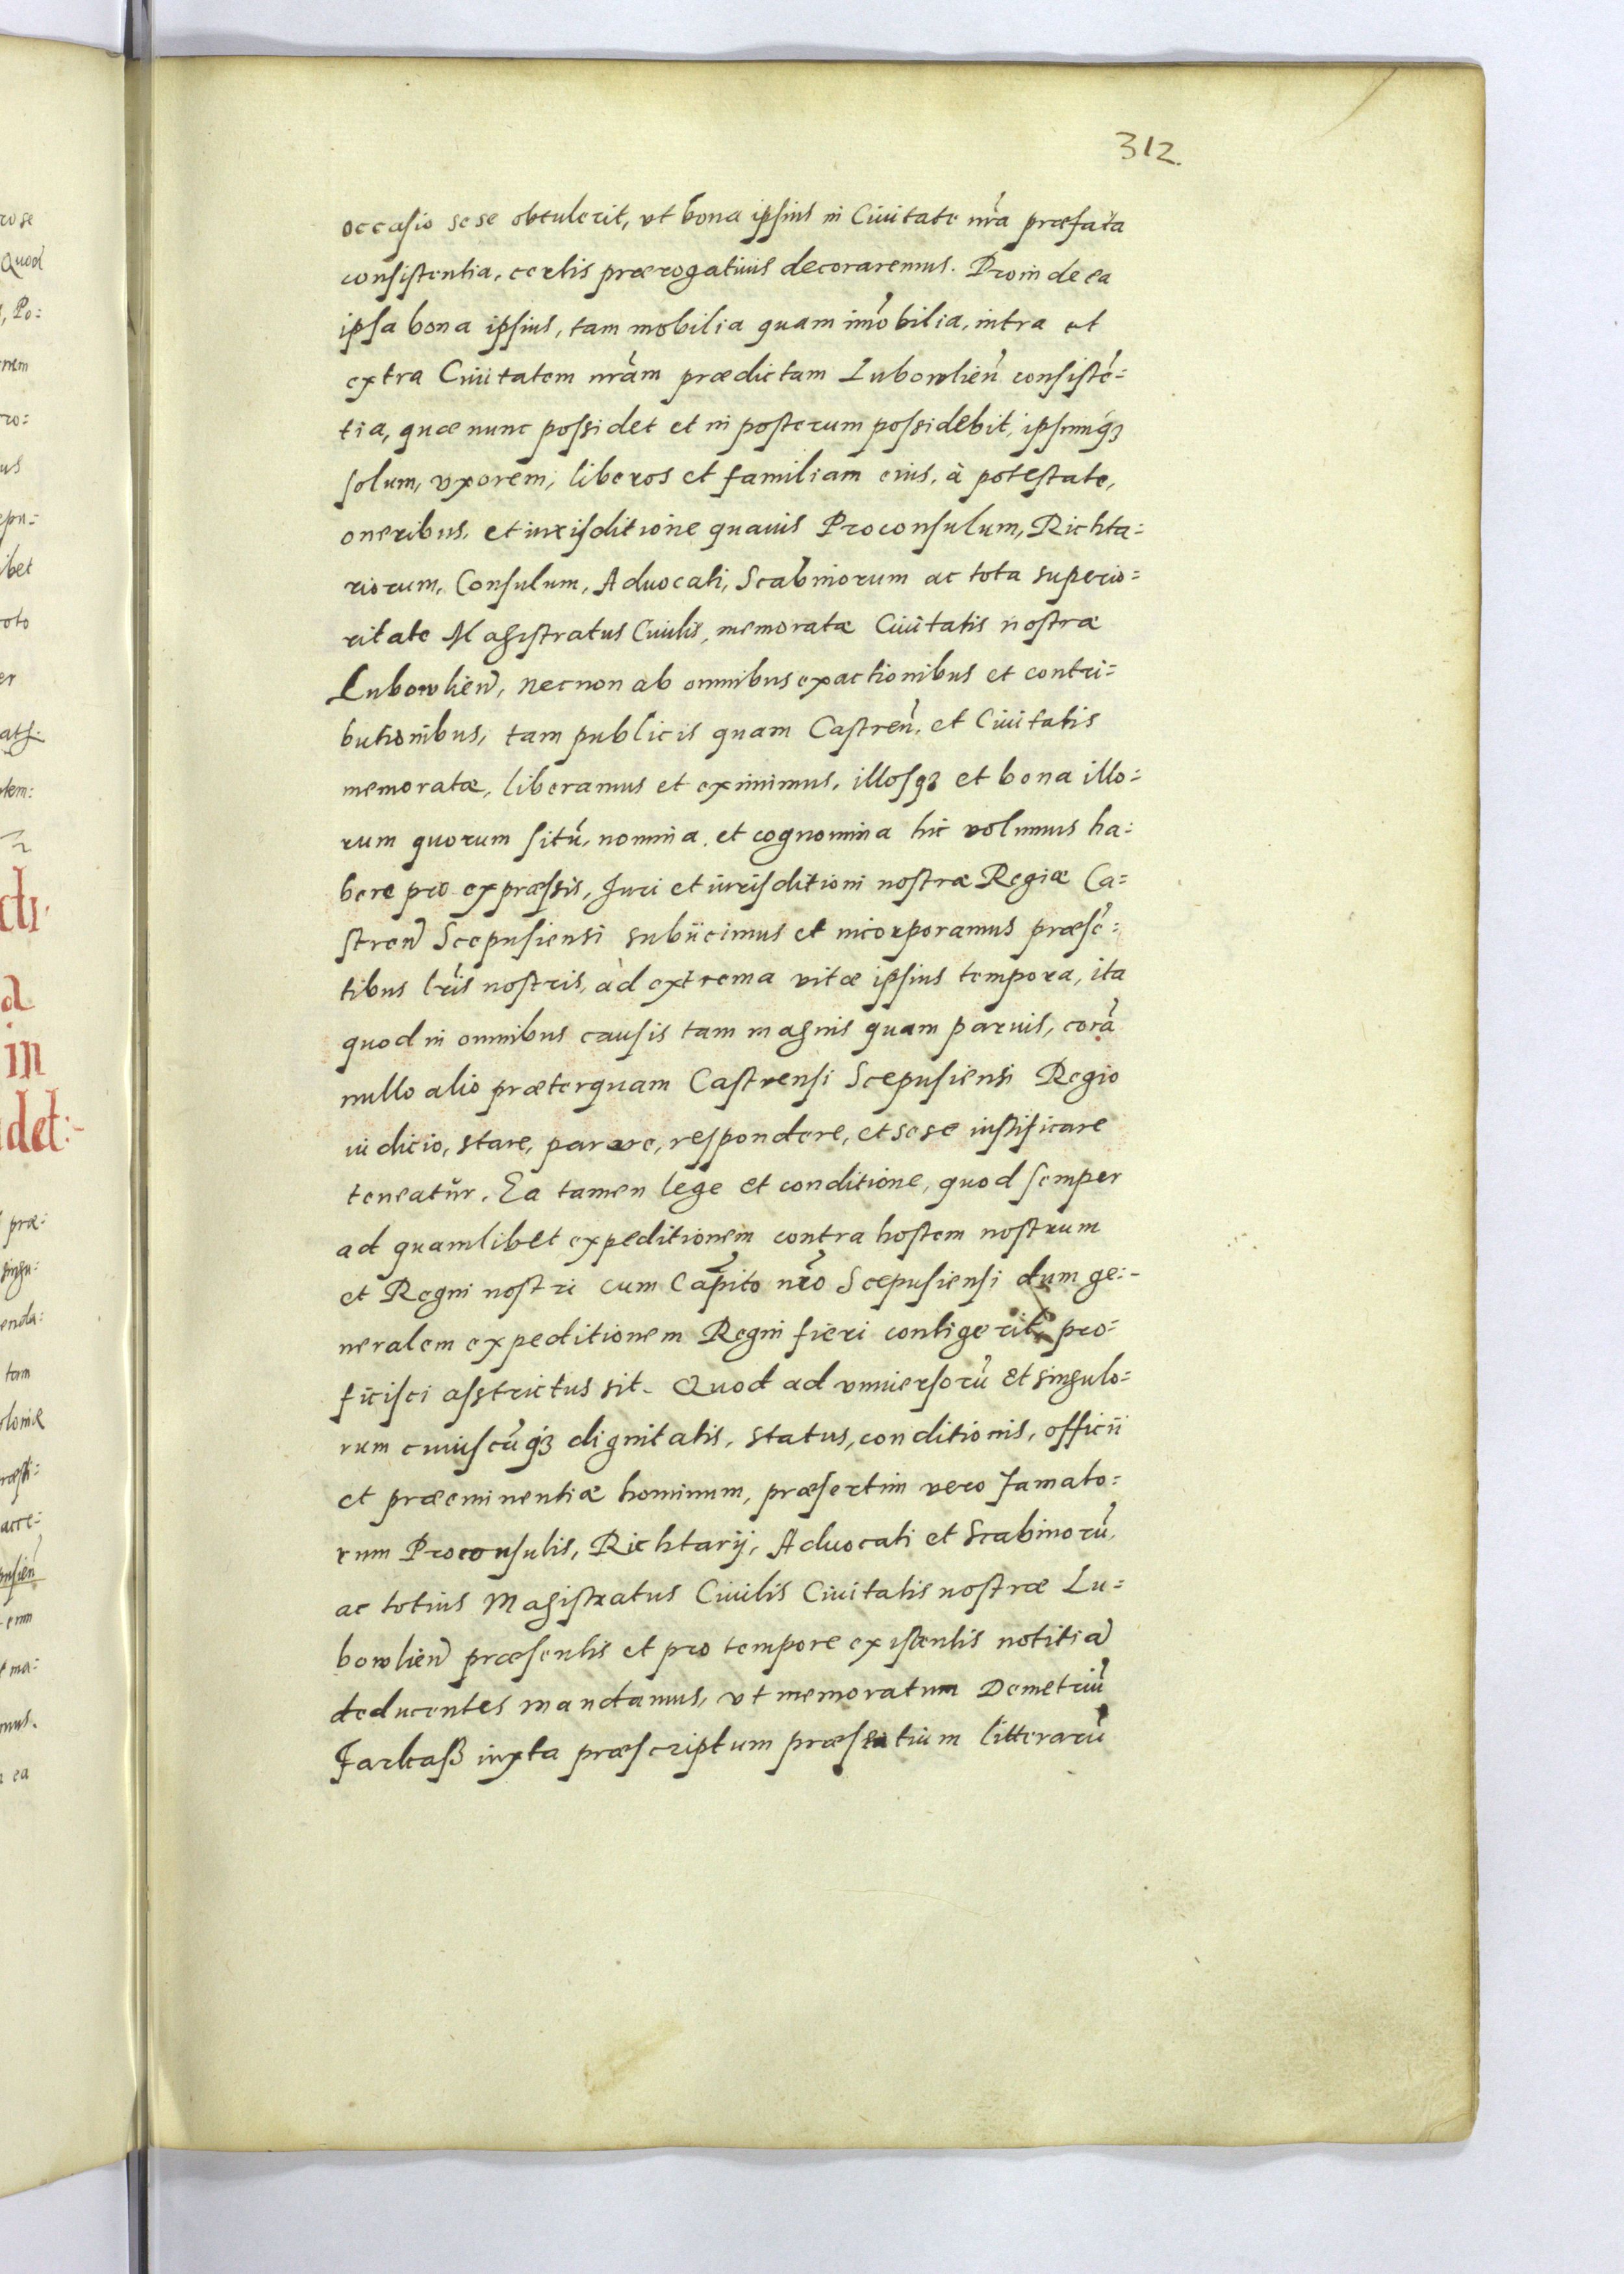 312.
occasio sese obtulerit, vt bona ipsius in Ciuitate nr̃a præfata
consistentia, certis prærogatiuis decoraremus. Proin de ea
ipsa bona ipsius, tam mobilia quam im̃obilia, intra et
extra Ciuitatem nr̃am prædictam Lubowlień consistẽ=
tia, quæ nunc possidet et in posterum possidebit, ipsumq́ʒ
solum, vxorem, liberos et familiam eius, à potestate,
oneribus, et iurisditione quauis Proconsulum, Richta=
riorum, Consulum, Aduocati, Scabinorum ac tota superio=
ritate Magistratus Ciuilis, memoratæ Ciuitatis nostræ
Lubowlień, necnon ab omnibus exactionibus et contri=
butionibus, tam publicis quam Castreń, et Ciuitatis
memoratæ, liberamus et eximimus, illosqʒ et bona illo=
rum quorum sitũ, nomina, et cognomina hic volumus ha=
bere pro expræssis, Juri et iurisditioni nostræ Regiæ Ca=
streń Scepusiensi subiicimus et incorporamus præsẽ=
tibus lr̃is nostris, ad extrema vitæ ipsius tempora, ita
quod in omnibus causis tam magnis quam paruis, corã
nullo alio præterquam Castrensi Scepusiensi Regio
iudicio, stare, parere, respondere, et sese iustificare
teneatur. Ea tamen lege et conditione, quod semper
ad quamlibet expeditionem contra hostem nostrum
et Regni nostri cum Capito nr̃o Scepusiensi dum ge=
neralem expeditionem Regni fieri contigerit, pro=
ficisci asstrictus sit. Quod ad vniuersorũ et singulo=
rum cuiuscũqʒ dignitatis, status, conditionis, officii
et præeminentiæ hominum, præsertim vero famato=
rum Proconsulis, Richtarij, Aduocati et Scabinorũ,
ac totius Magistratus Ciuilis Ciuitatis nostræ Lu=
bowlień præsentis et pro tempore existentis notitiã
deducentes mandamus, vt memoratum Demetriũ
Jarkaß iuxta præscriptum præsentium litterarũ